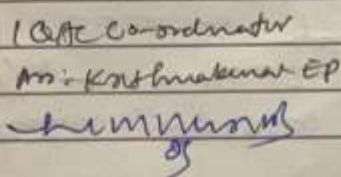 IQAC Co-ordinator
Mr. Krishnakumar EP